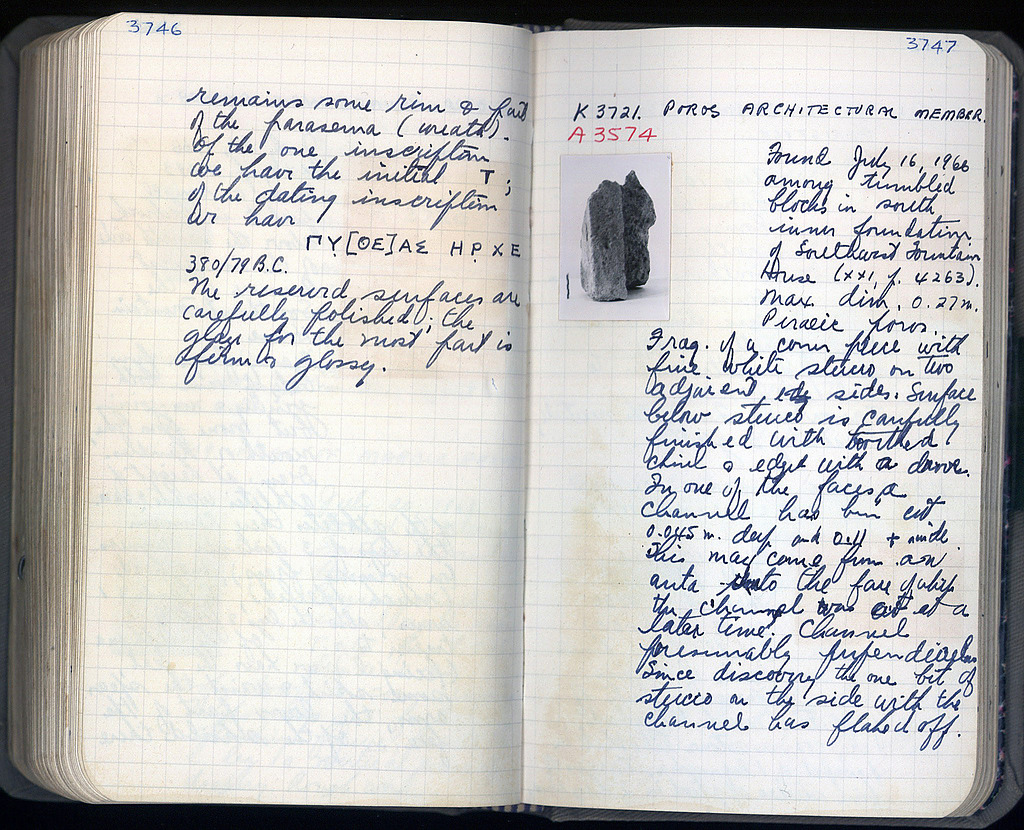 3746
remains some rim & part
of the parasema (wreath).
Of the one inscription
we have the initial T;
of the dating inscription
we have
ΠΥ[ΘΕ]ΑΣ ΗΡΧΕ
380/79 B.C.
The reserved surfaces are
carefully polished; the
glaze for the most part is
firm & glossy.
3747
K 3721. POROS ARCHITECTURAL MEMBER.
A 3574
Found July 16, 1966
among tumbled
blocks in south
inner foundation
of Southwest Fountain
House (XXI, p. 4263).
Max dim. 0.27 m.
Piraeic poros.
Frag. of a corner piece with
fine white stucco on two
adjacent sides. Surface
below stucco is carefully
finished with toothed
chisel & edged with a drove.
In one of the faces a
channel has been cut
0.045 m. deep and 0.11 + wide.
This may come from an
anta into the face of which
the channel was cut at a
later time. Channel
presumably perpendicular
Since discovery the one bit of
stucco on the side with the
channel has flaked off.